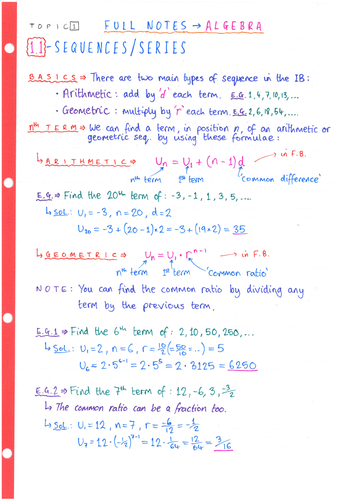 TOPIC 1 FULL NOTES → ALGEBRA
1.1 - SEQUENCES/SERIES
BASICS ⇒ There are two main types of sequence in the IB:
• Arithmetic: add by 'd' each term. E.G. 1, 4, 7, 10, 13, ....
• Geometric: multiply by 'r' each term. E.G. 2, 6, 18, 54, ...
nth TERM ⇒ We can find a term, in position n, of an arithmetic or
geometric seq. by using these formulae:
↳ ARITHMETIC ⇒ Un = U1 + (n-1)d → in F.B.
nth term 1st term 'common difference'
E.G. ⇒ Find the 20th term of: -3, -1, 1, 3, 5, ....
↳ SOL: U1 = -3, n = 20, d = 2
U20 = -3 + (20-1)×2 = -3 + (19×2) = 35
↳ GEOMETRIC ⇒ Un = U1 • r^n-1 → in F.B.
nth term 1st term 'common ratio'
NOTE: You can find the common ratio by dividing any
term by the previous term.
E.G.1 ⇒ Find the 6th term of: 2, 10, 50, 250, ...
↳ SOL: U1 = 2, n = 6, r = 10/2 (= 50/10 = ..) = 5
U6 = 2 • 5^6-1 = 2 • 5^5 = 2 • 3125 = 6250
E.G.2 ⇒ Find the 7th term of: 12, -6, 3, -3/2
↳ The common ratio can be a fraction too.
↳ SOL: U1 = 12, n = 7, r = -6/12 = -1/2
U7 = 12 • (-1/2)^7-1 = 12 • 1/64 = 12/64 = 3/16